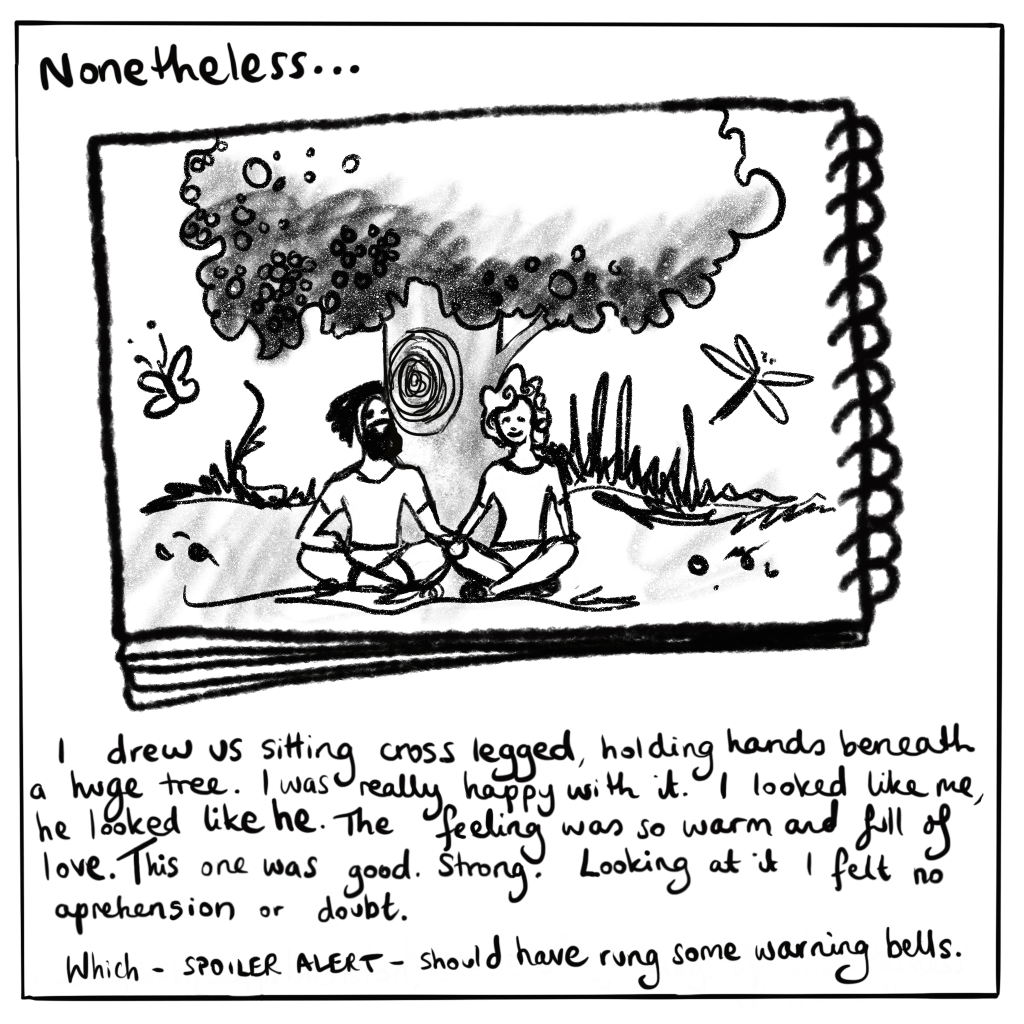 Nonetheless...
I drew us sitting cross legged, holding hands beneath
a huge tree. I was really happy with it. I looked like me,
he looked like he. The feeling was so warm and full of
love. This one was good. Strong. Looking at it I felt no
aprehension or doubt.
Which - SPOILER ALERT - should have rung some warning bells.